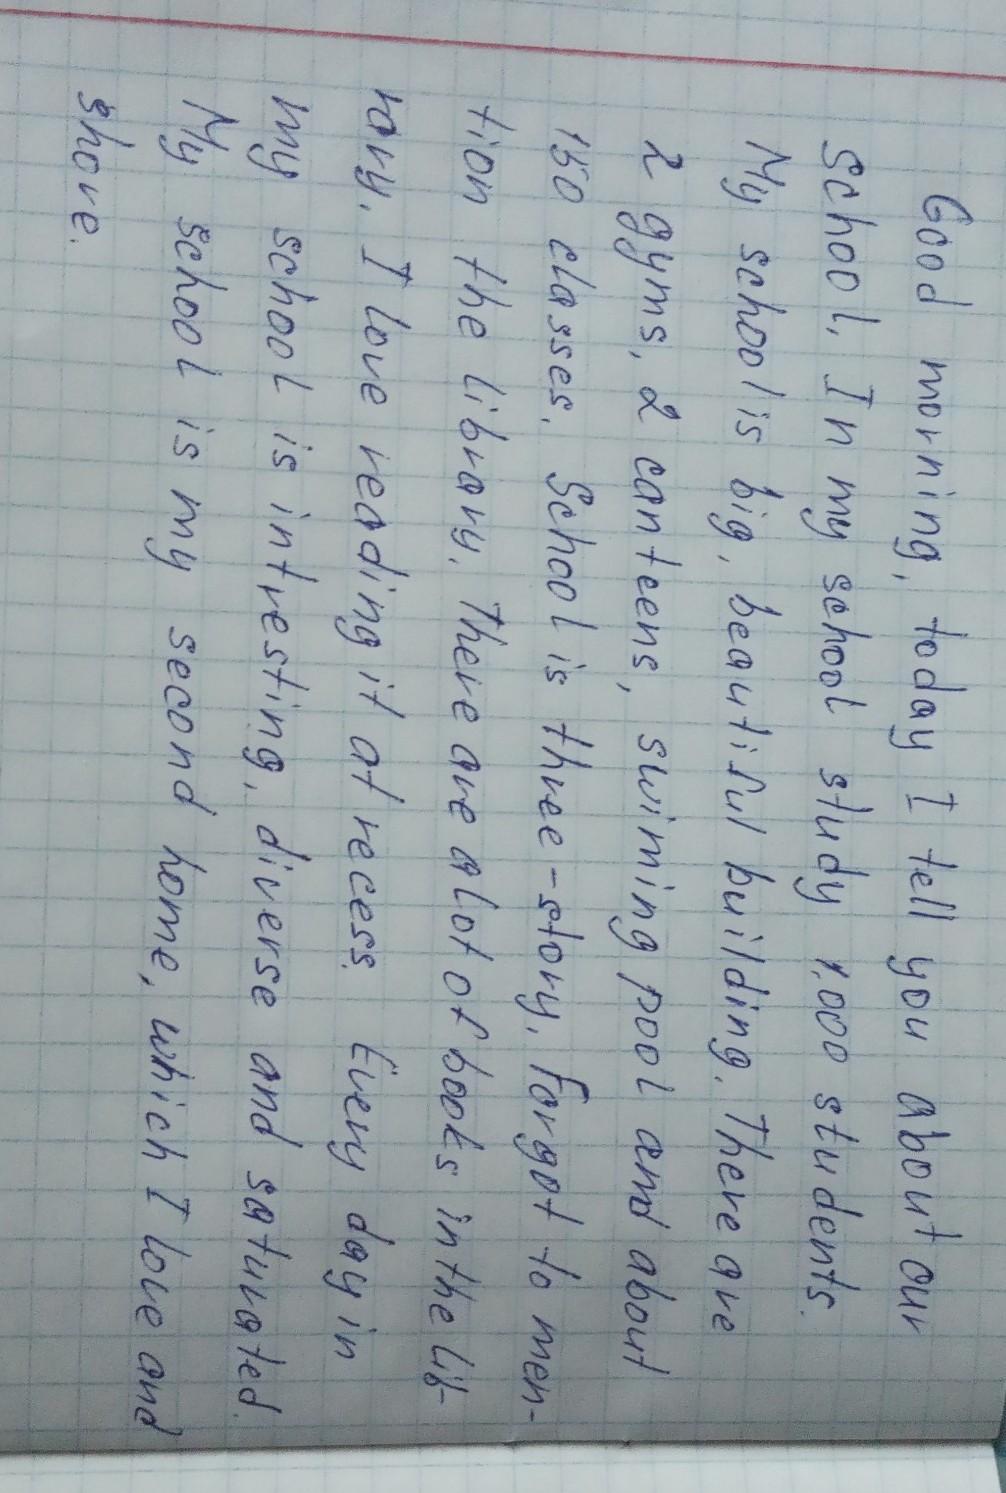 Good morning, today I tell you about our
school. In my school study 1,000 students.
My school is big, beautiful building. There are
2 gyms, 2 canteens, swiming pool and about
150 classes. School is three-story. Forgot to men-
tion the library. There are a lot of books in the lib-
rary. I love reading it at recess. Every day in
my school is intresting, diverse and saturated.
My school is my second home, which I love and
shore.